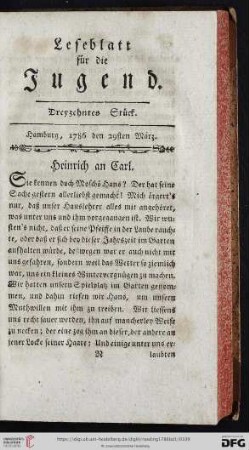 Leseblatt
für die
Jugend.
Dreyzehntes Stück.
Hamburg, 1786 den 29sten März.
Heinrich an Carl.
Sie kennen doch Moschö Hans? Der hat seine
Sache gestern allerliebst gemacht! Mich ärgert's
nur, daß unser Hauslehrer alles mit angehöret,
was unter uns und ihm vorgegangen ist. Wir wu-
sten's nicht, daß er seine Pfeiffe in der Laube rauch-
te, oder daß er sich bey dieser Jahrszeit im Garten
aufhalten würde, deswegen war er auch nicht mit
uns gefahren, sondern weil das Wetter so ziemlich
war, uns ein kleines Wintervergnügen zu machen.
Wir hatten unsern Spielplatz im Garten genom-
men, und dahin riefen wir Hans, um unsern
Muthwillen mit ihm zu treiben. Wir liessens
uns recht sauer werden, ihn auf mancherley Weise
zu necken; der eine zog ihm an dieser, der andere an
jener Locke seiner Haare; Und einige unter uns er-
N laubten
DFG